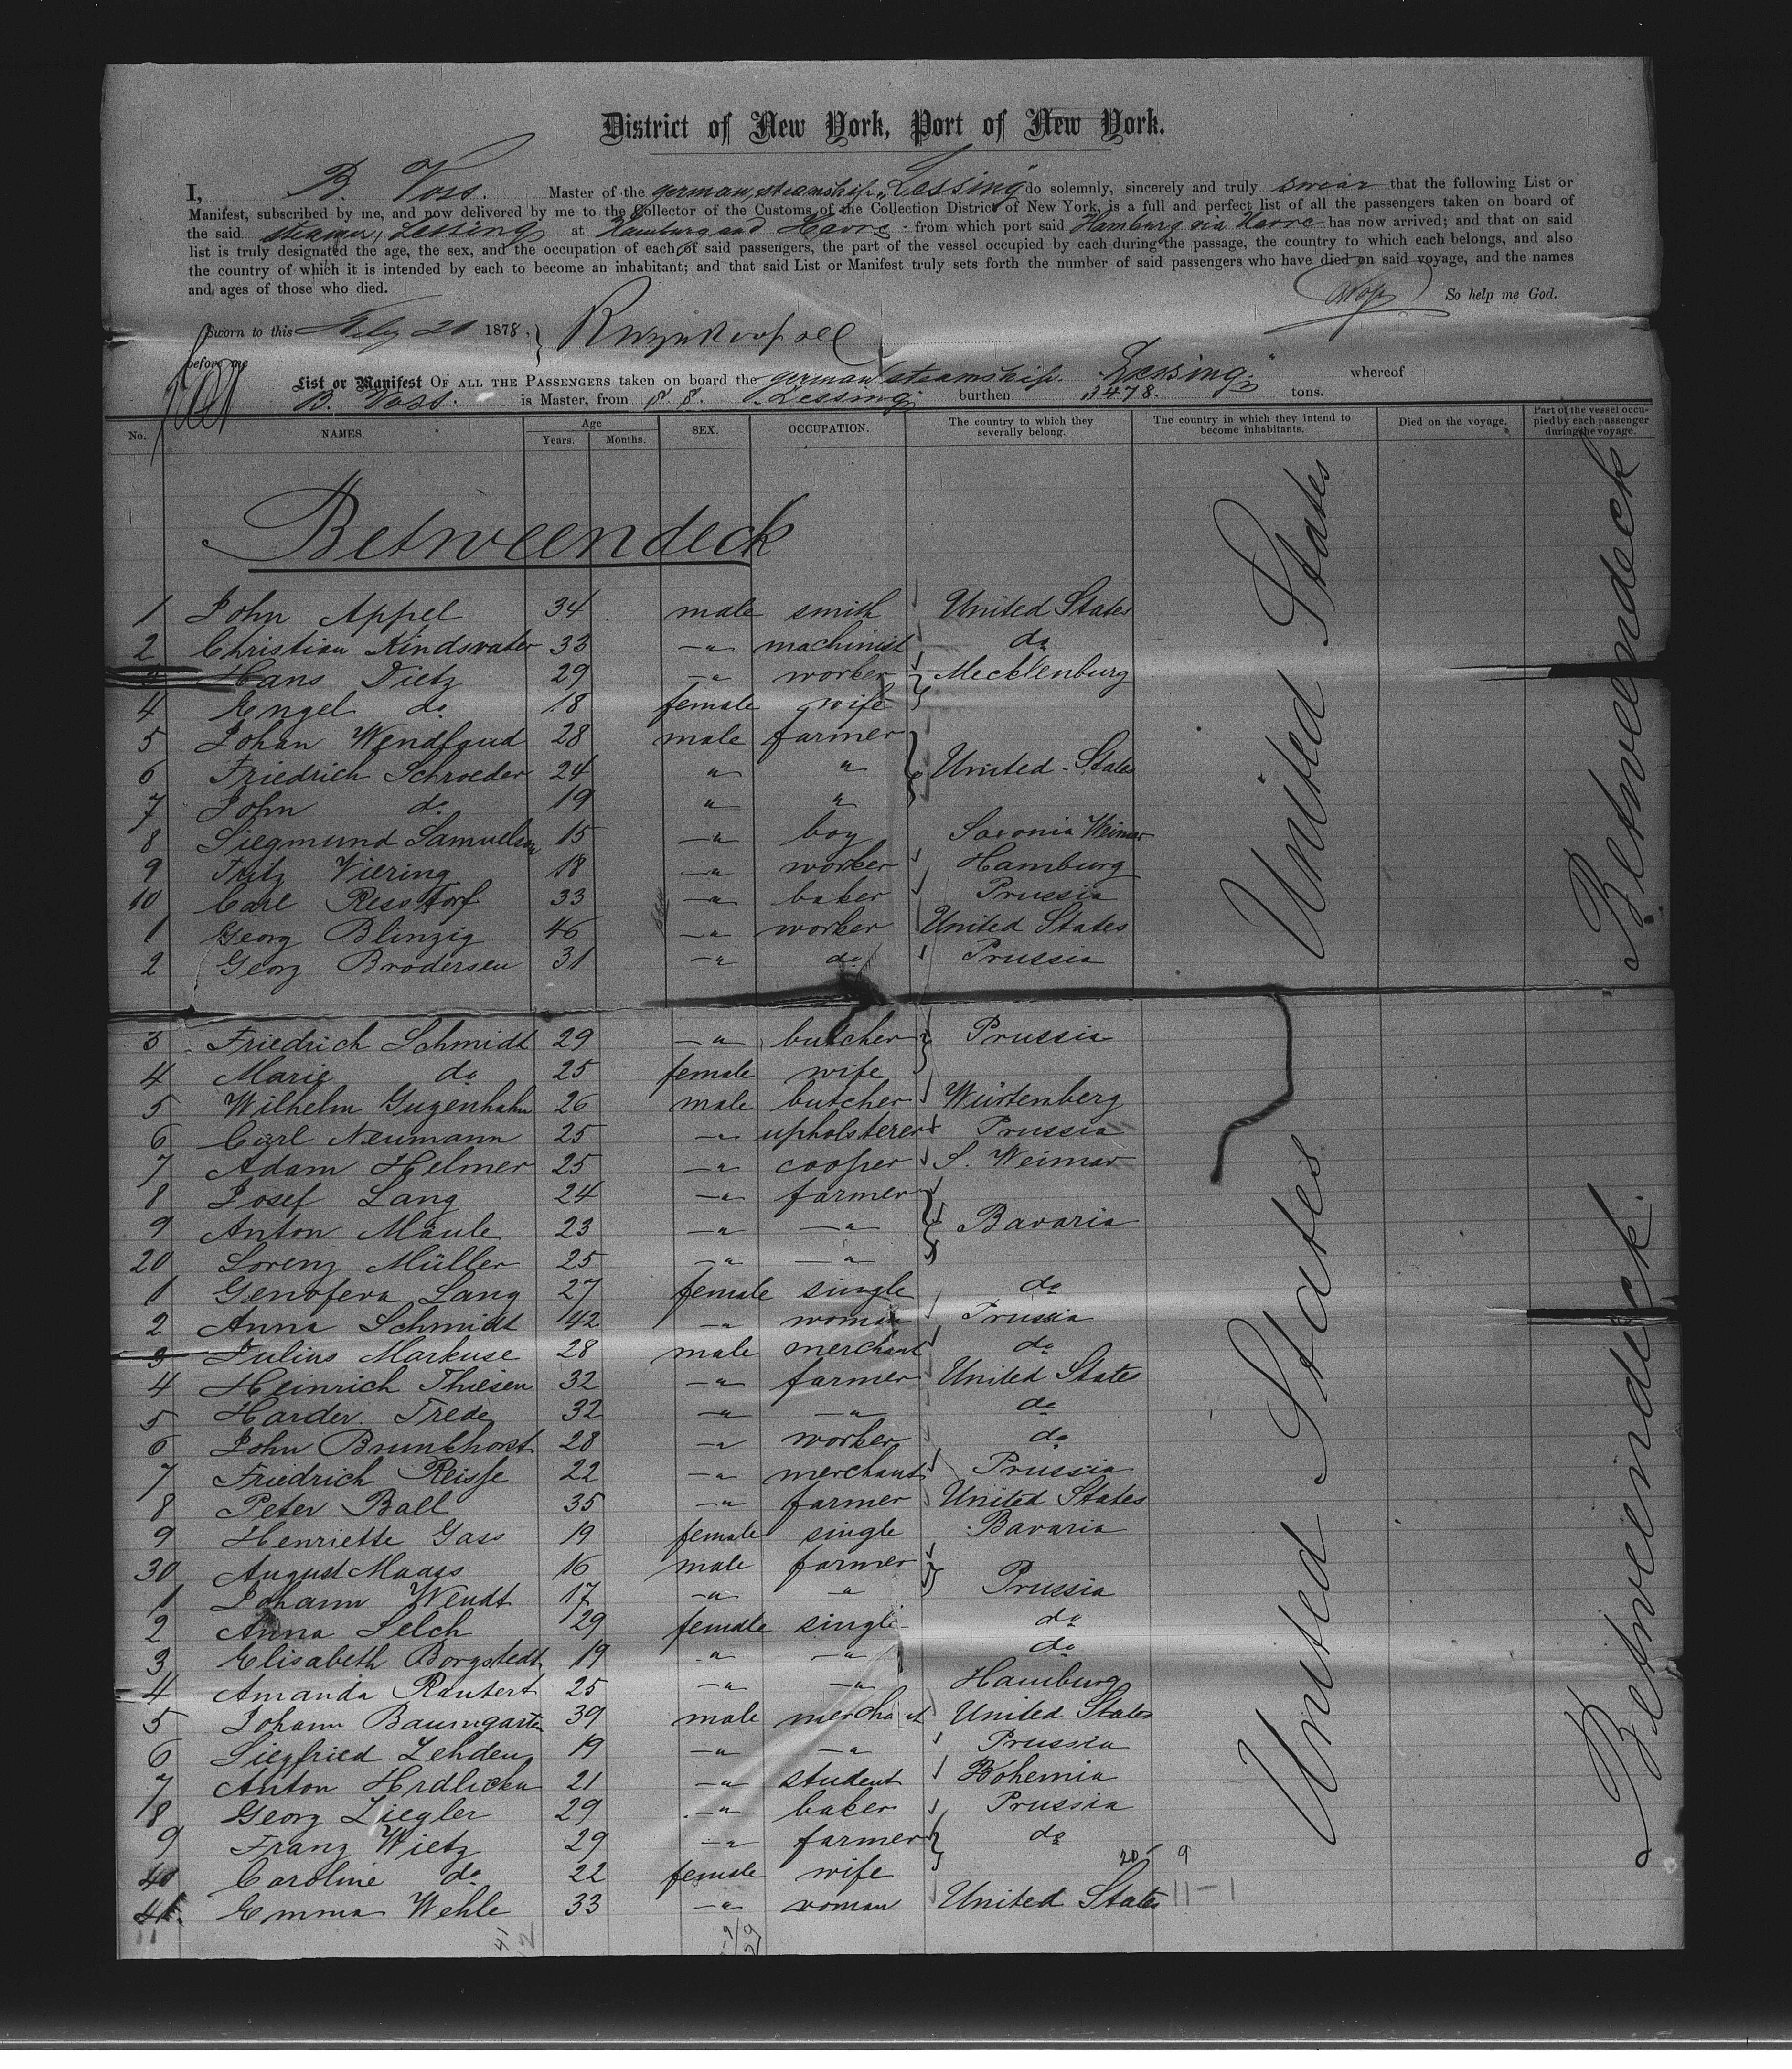 District of New York, Port of New York.
I, B. Voss. Master of the german steamship "Lessing" do solemnly, sincerely and truly swear that the following List or
Manifest, subscribed by me, and now delivered by me to the Collector of the Customs of the Collection District of New York, is a full and perfect list of all the passengers taken on board of
the said steamer, Lessing at Hamburg and Havre - from which port said Hamburg via Havre has now arrived; and that on said
list is truly designated the age, the sex, and the occupation of each of said passengers, the part of the vessel occupied by each during the passage, the country to which each belongs, and also
the country of which it is intended by each to become an inhabitant; and that said List or Manifest truly sets forth the number of said passengers who have died on said voyage, and the names
and ages of those who died. So help me God.
Sworn to this 1878.
before me
List or Manifest OF ALL THE PASSENGERS taken on board the german steamship "Lessing" whereof
B. Voss. is Master, from S. S. Lessing burthen 3478. tons.
No. NAMES. Age Years. Months. SEX. OCCUPATION. The country to which they severally belong. The country in which they intend to become inhabitants. Died on the voyage. Part of the vessel occupied by each passenger during the voyage.
Betweendeck
1 John Appel 34 male smith United States
2 Christian Kindsvater 33 -"- machinist do
3 Hans Dietz 29 -"- worker Mecklenburg
4 Engel do 18 female wife
5 Johan Wendfeud 28 male farmer
6 Friedrich Schroeder 24 " " United States
7 John do 19 " "
8 Siegmund Samuelson 15 -"- boy Saxonia Weimar
9 Fritz Viering 18 -"- worker Hamburg
10 Carl Resstorf 33 -"- baker Prussia
1 Georg Blinzig 46 -"- worker United States
2 Georg Brodersen 31 -"- do Prussia
3 Friedrich Schmidt 29 -"- butcher Prussia
4 Marie do 25 female wife
5 Wilhelm Gugenhahn 26 male butcher Würtenberg
6 Carl Neumann 25 -"- upholsterer Prussia
7 Adam Helmer 25 -"- cooper S. Weimar
8 Josef Lang 24 -"- farmer
9 Anton Maule 23 -"- -"- Bavaria
20 Lorenz Müller 25 -"- -"-
1 Genofera Lang 27 female single do
2 Anna Schmidt 42 -"- woman Prussia
3 Julius Markuse 28 male merchant do
4 Heinrich Thiesen 32 -"- farmer United States
5 Harder Trede 32 -"- -"- do
6 John Brunkhorst 28 -"- worker do
7 Friedrich Reisse 22 -"- merchant Prussia
8 Peter Ball 35 -"- farmer United States
9 Henriette Gass 19 female single Bavaria
30 August Maass 16 male farmer
1 Johann Wendt 17 -"- " Prussia
2 Anna Selch 29 female single do
3 Elisabeth Borgstedt 19 -"- -"- do
4 Amanda Rautert 25 -"- -"- Hamburg
5 Johann Baumgarten 39 male merchant United States
6 Siegfried Lehden 19 -"- -"- Prussia
7 Anton Hrdlicka 21 -"- student Bohemia
8 Georg Ziegler 29 -"- baker Prussia
9 Franz Wietz 29 -"- farmer do
40 Caroline do 22 female wife
41 Emma Wehle 33 -"- woman United States
United States
Betweendeck
United States
Betweendeck